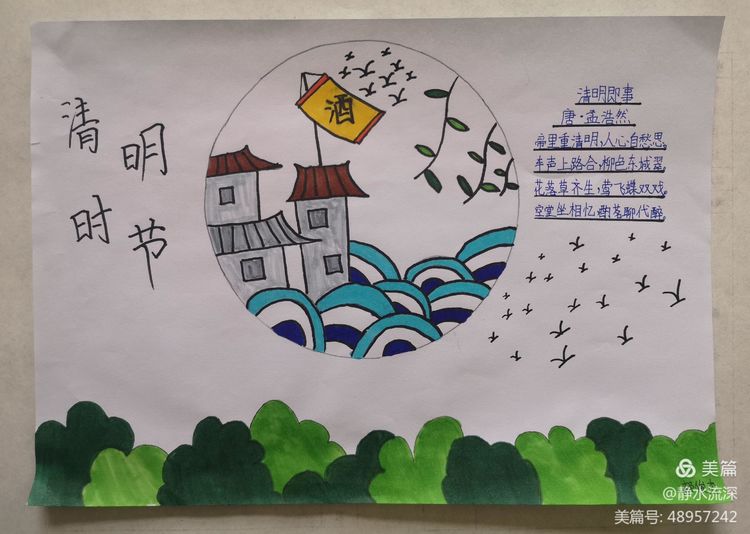 清明
时节
酒
清明即事
唐·孟浩然
帝里重清明,人心自愁思。
车声上路合,柳色东城翠。
花落草齐生,莺飞蝶双戏。
空堂坐相忆,酌茗聊代醉。
美篇
@静水流深
美篇号: 48957242